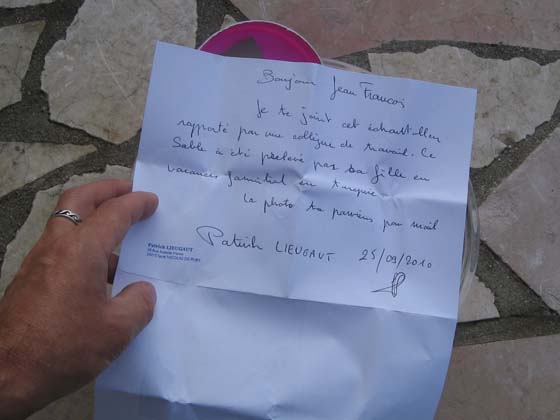 Bonjour Jean Francois
Je te joint cet échantillon
rapporté par une collègue de travail. Ce
Sable à été prelevé par sa fille en
vacances familial en Turquie
La photo te parviens par mail
Patrick LIEUGAUT 25/09/2010
Patrick LIEUGAUT